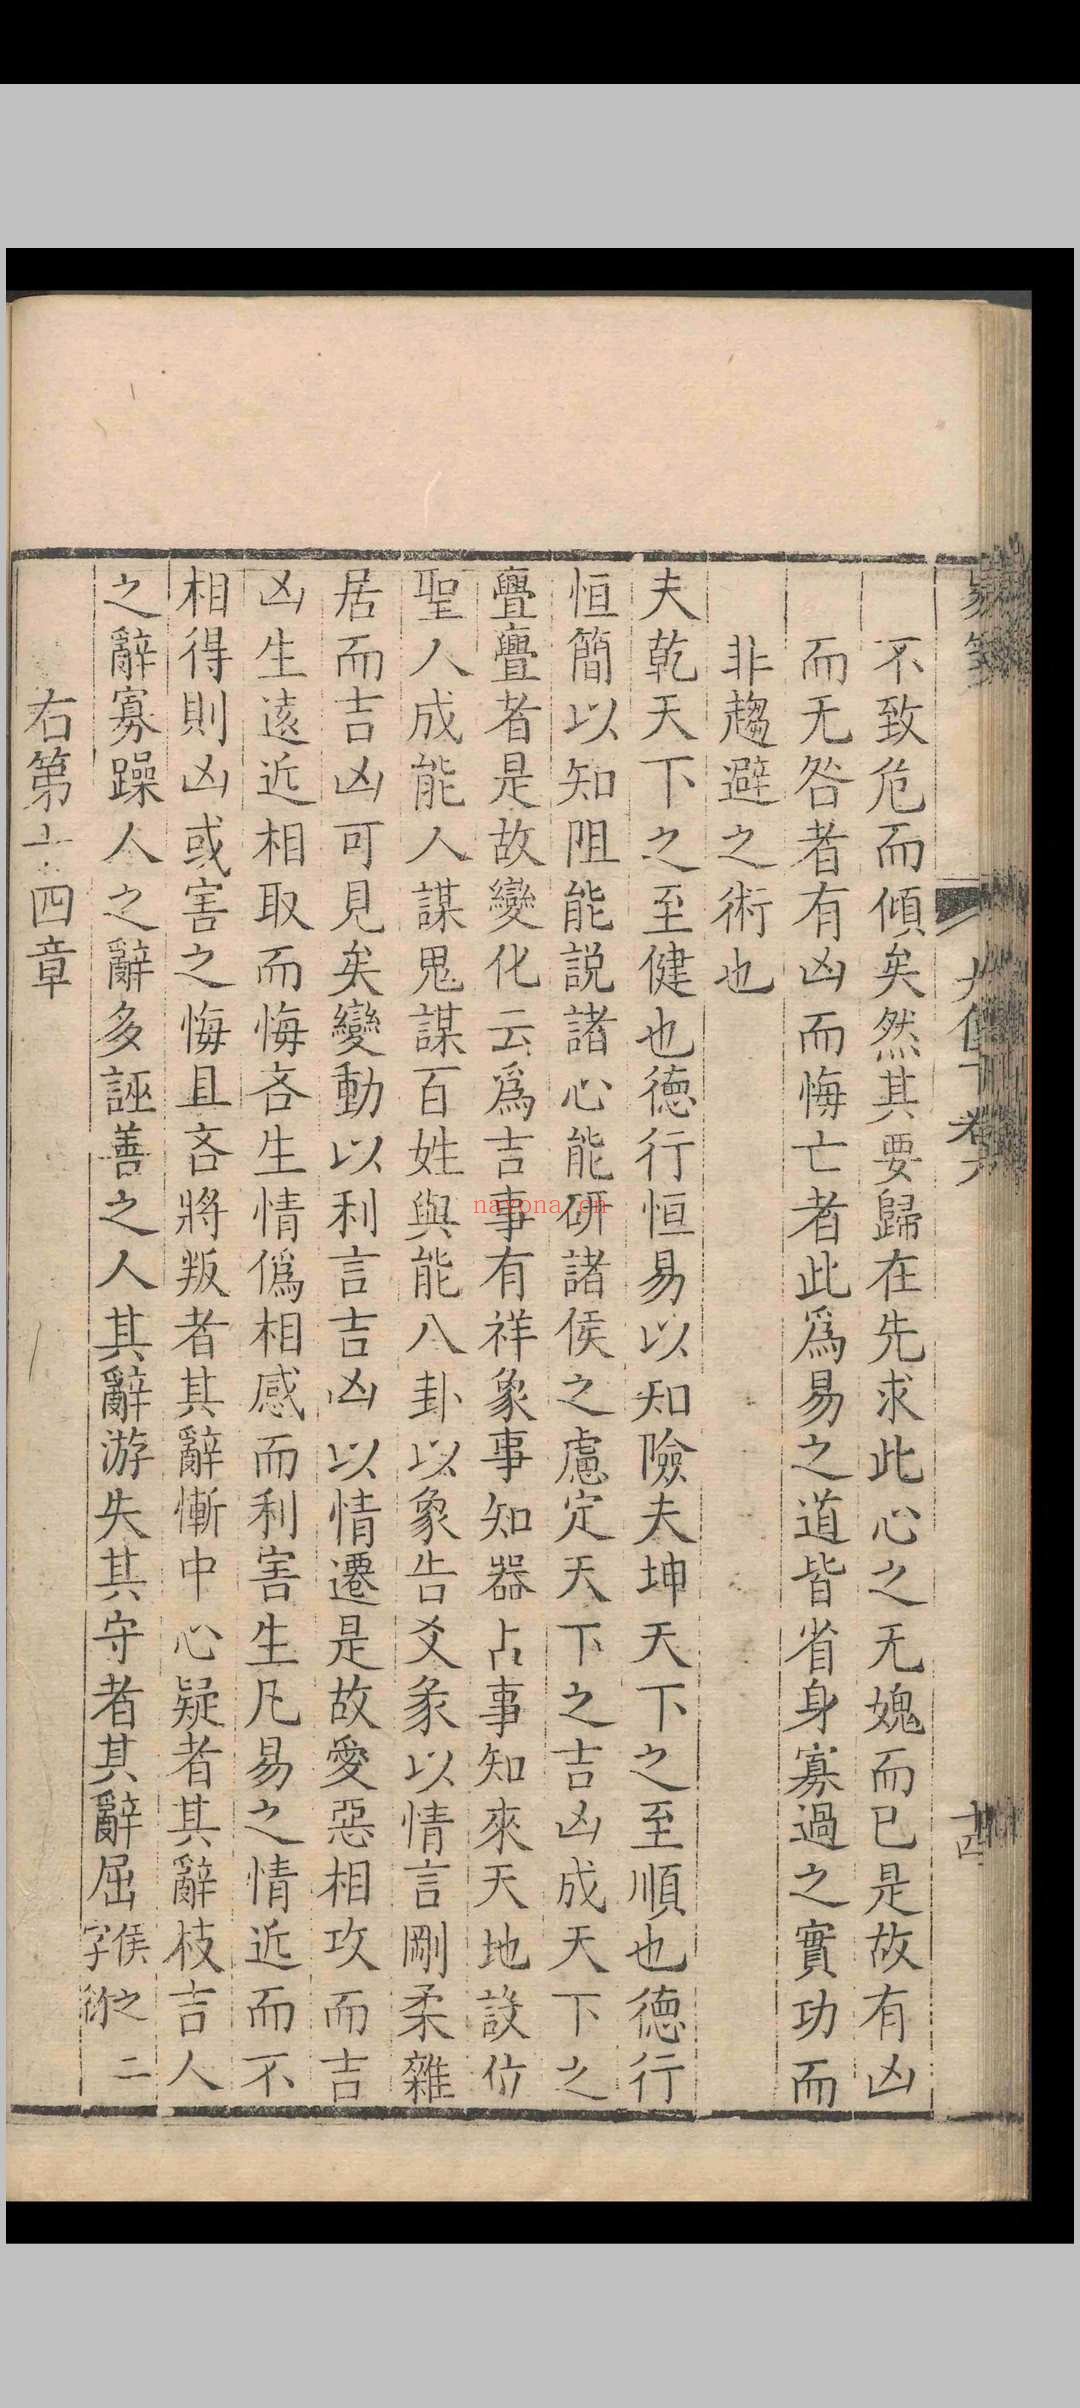 不致危而傾矣然其要歸在先求此心之无媿而已是故有凶
而无咎者有凶而悔亡者此爲易之道皆省身寡過之實功而
非趨避之術也
夫乾天下之至健也德行恒易以知險夫坤天下之至順也德行
恒簡以知阻能説諸心能研諸侯之慮定天下之吉凶成天下之
亹亹者是故變化云爲吉事有祥象事知器占事知來天地設位
聖人成能人謀鬼謀百姓與能八卦以象告爻彖以情言剛柔雜
居而吉凶可見矣變動以利言吉凶以情遷是故愛惡相攻而吉
凶生遠近相取而悔吝生情僞相感而利害生凡易之情近而不
相得則凶或害之悔且吝將叛者其辭慚中心疑者其辭枝吉人
之辭寡躁人之辭多誣善之人其辭游失其守者其辭屈侯之二
字衍
右第十四章
十四
nayona.cn